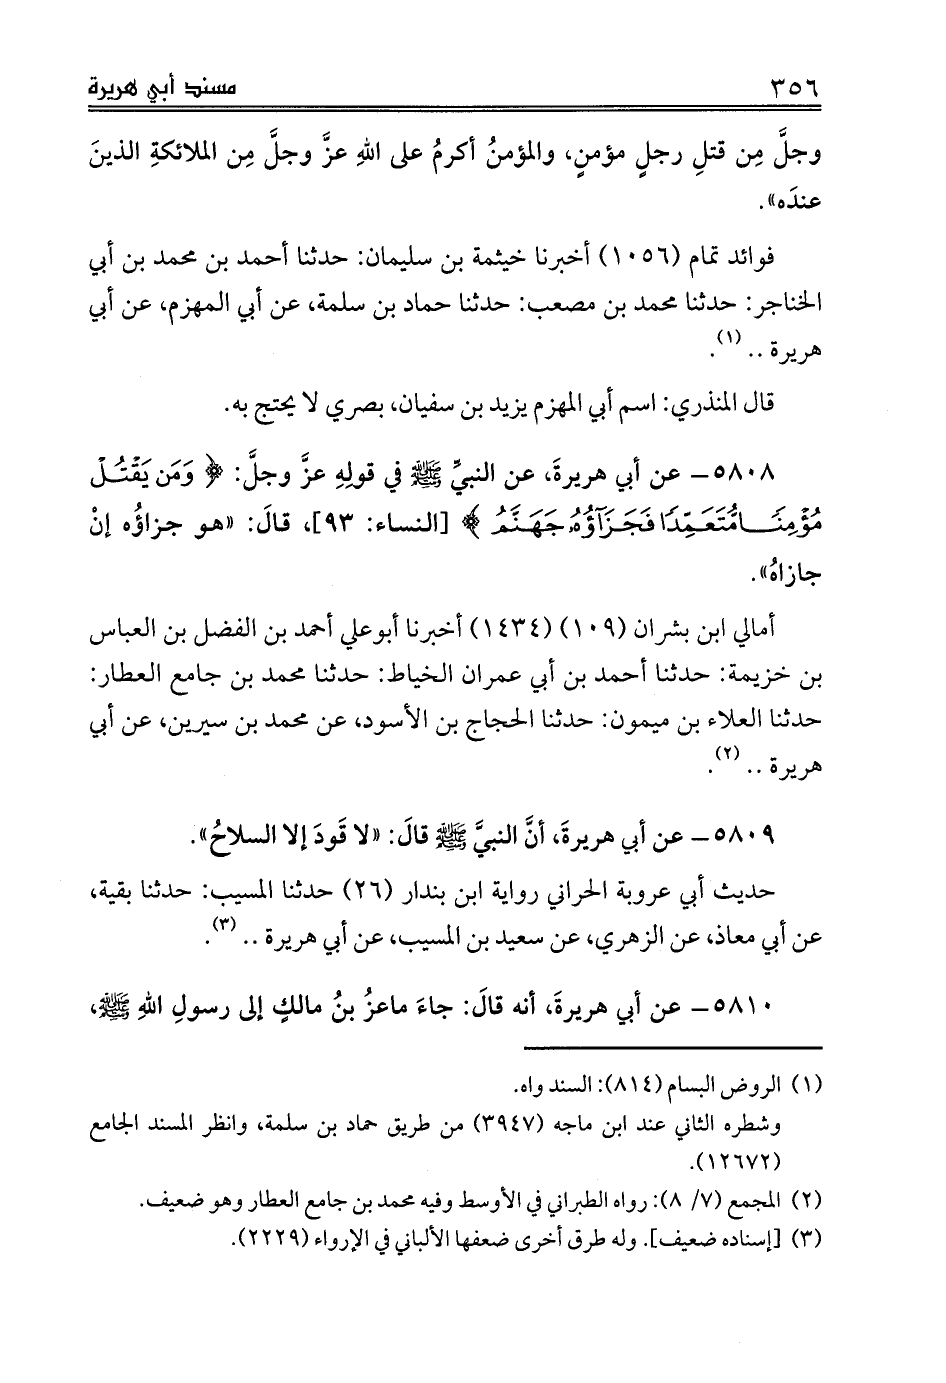 ٣٥٦ مسند أبي هريرة
وجلَّ مِن قتلِ رجلٍ مؤمنٍ، والمؤمنُ أكرمُ على اللهِ عزَّ وجلَّ مِن الملائكةِ الذينَ
عندَه».
فوائد تمام (١٠٥٦) أخبرنا خيثمة بن سليمان: حدثنا أحمد بن محمد بن أبي
الخناجر: حدثنا محمد بن مصعب: حدثنا حماد بن سلمة، عن أبي المهزم، عن أبي
هريرة .. (١).
قال المنذري: اسم أبي المهزم يزيد بن سفيان، بصري لا يحتج به.
٥٨٠٨ـ عن أبي هريرةَ، عن النبيِّ ﷺ في قولِهِ عزَّ وجلَّ: ﴿ وَمَن يَقْتُلْ
مُؤْمِنًا مُّتَعَمِّدًا فَجَزَآؤُهُۥ جَهَنَّمُ ﴾ [النساء: ٩٣]، قالَ: «هو جزاؤُه إنْ
جازاهُ».
أمالي ابن بشران (١٠٩) (١٤٣٤) أخبرنا أبوعلي أحمد بن الفضل بن العباس
بن خزيمة: حدثنا أحمد بن أبي عمران الخياط: حدثنا محمد بن جامع العطار:
حدثنا العلاء بن ميمون: حدثنا الحجاج بن الأسود، عن محمد بن سيرين، عن أبي
هريرة .. (٢).
٥٨٠٩ـ عن أبي هريرةَ، أنَّ النبيَّ ﷺ قالَ: «لا قَودَ إلا السلاحُ».
حديث أبي عروبة الحراني رواية ابن بندار (٢٦) حدثنا المسيب: حدثنا بقية،
عن أبي معاذ، عن الزهري، عن سعيد بن المسيب، عن أبي هريرة .. (٣).
٥٨١٠ـ عن أبي هريرةَ، أنه قالَ: جاءَ ماعزُ بنُ مالكٍ إلى رسولِ اللهِ ﷺ،
(١) الروض البسام (٨١٤): السند واه.
وشطره الثاني عند ابن ماجه (٣٩٤٧) من طريق حماد بن سلمة، وانظر المسند الجامع
(١٢٦٧٢).
(٢) المجمع (٧/ ٨): رواه الطبراني في الأوسط وفيه محمد بن جامع العطار وهو ضعيف.
(٣) [إسناده ضعيف]. وله طرق أخرى ضعفها الألباني في الإرواء (٢٢٢٩).